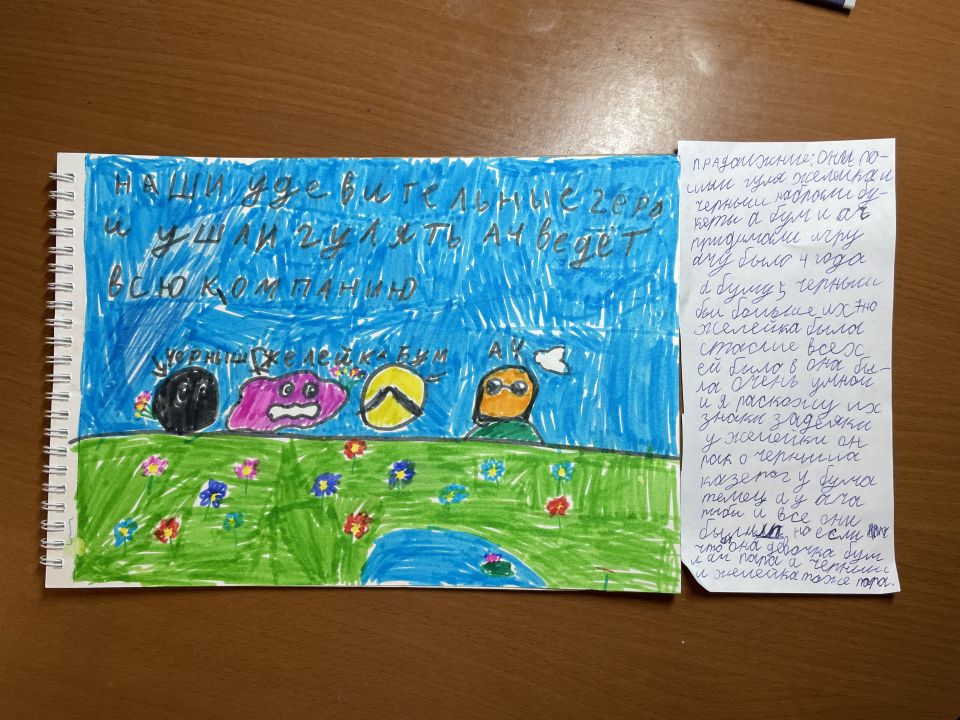 НАШИ УДЕВИТЕЛЬНЫЕ ГЕРО
И УШЛИ ГУЛЯТЬ АЧ ВЕДЁТ
ВСЮ КОМПАНИЮ
ЧЕРНЫШ ЖЕЛЕЙКА БУМ АЧ
ПРАДОЛЖНИЕ: ОНИ ПО-
шли гуля желейка и
черныш набрали бу-
кеты а бум и ач
придумали игру
ачу было 4 года
а буму 5 черныш
был больше их
желейка была
всех
ей было она бы-
ла очень умной
и я раскожу их
знаки
у желейки он
рак о черныша
казерог у бума
телец а у ача
и все они
были но если
что она девочка бум
и ач пара а черныш
и желейка тоже пара.